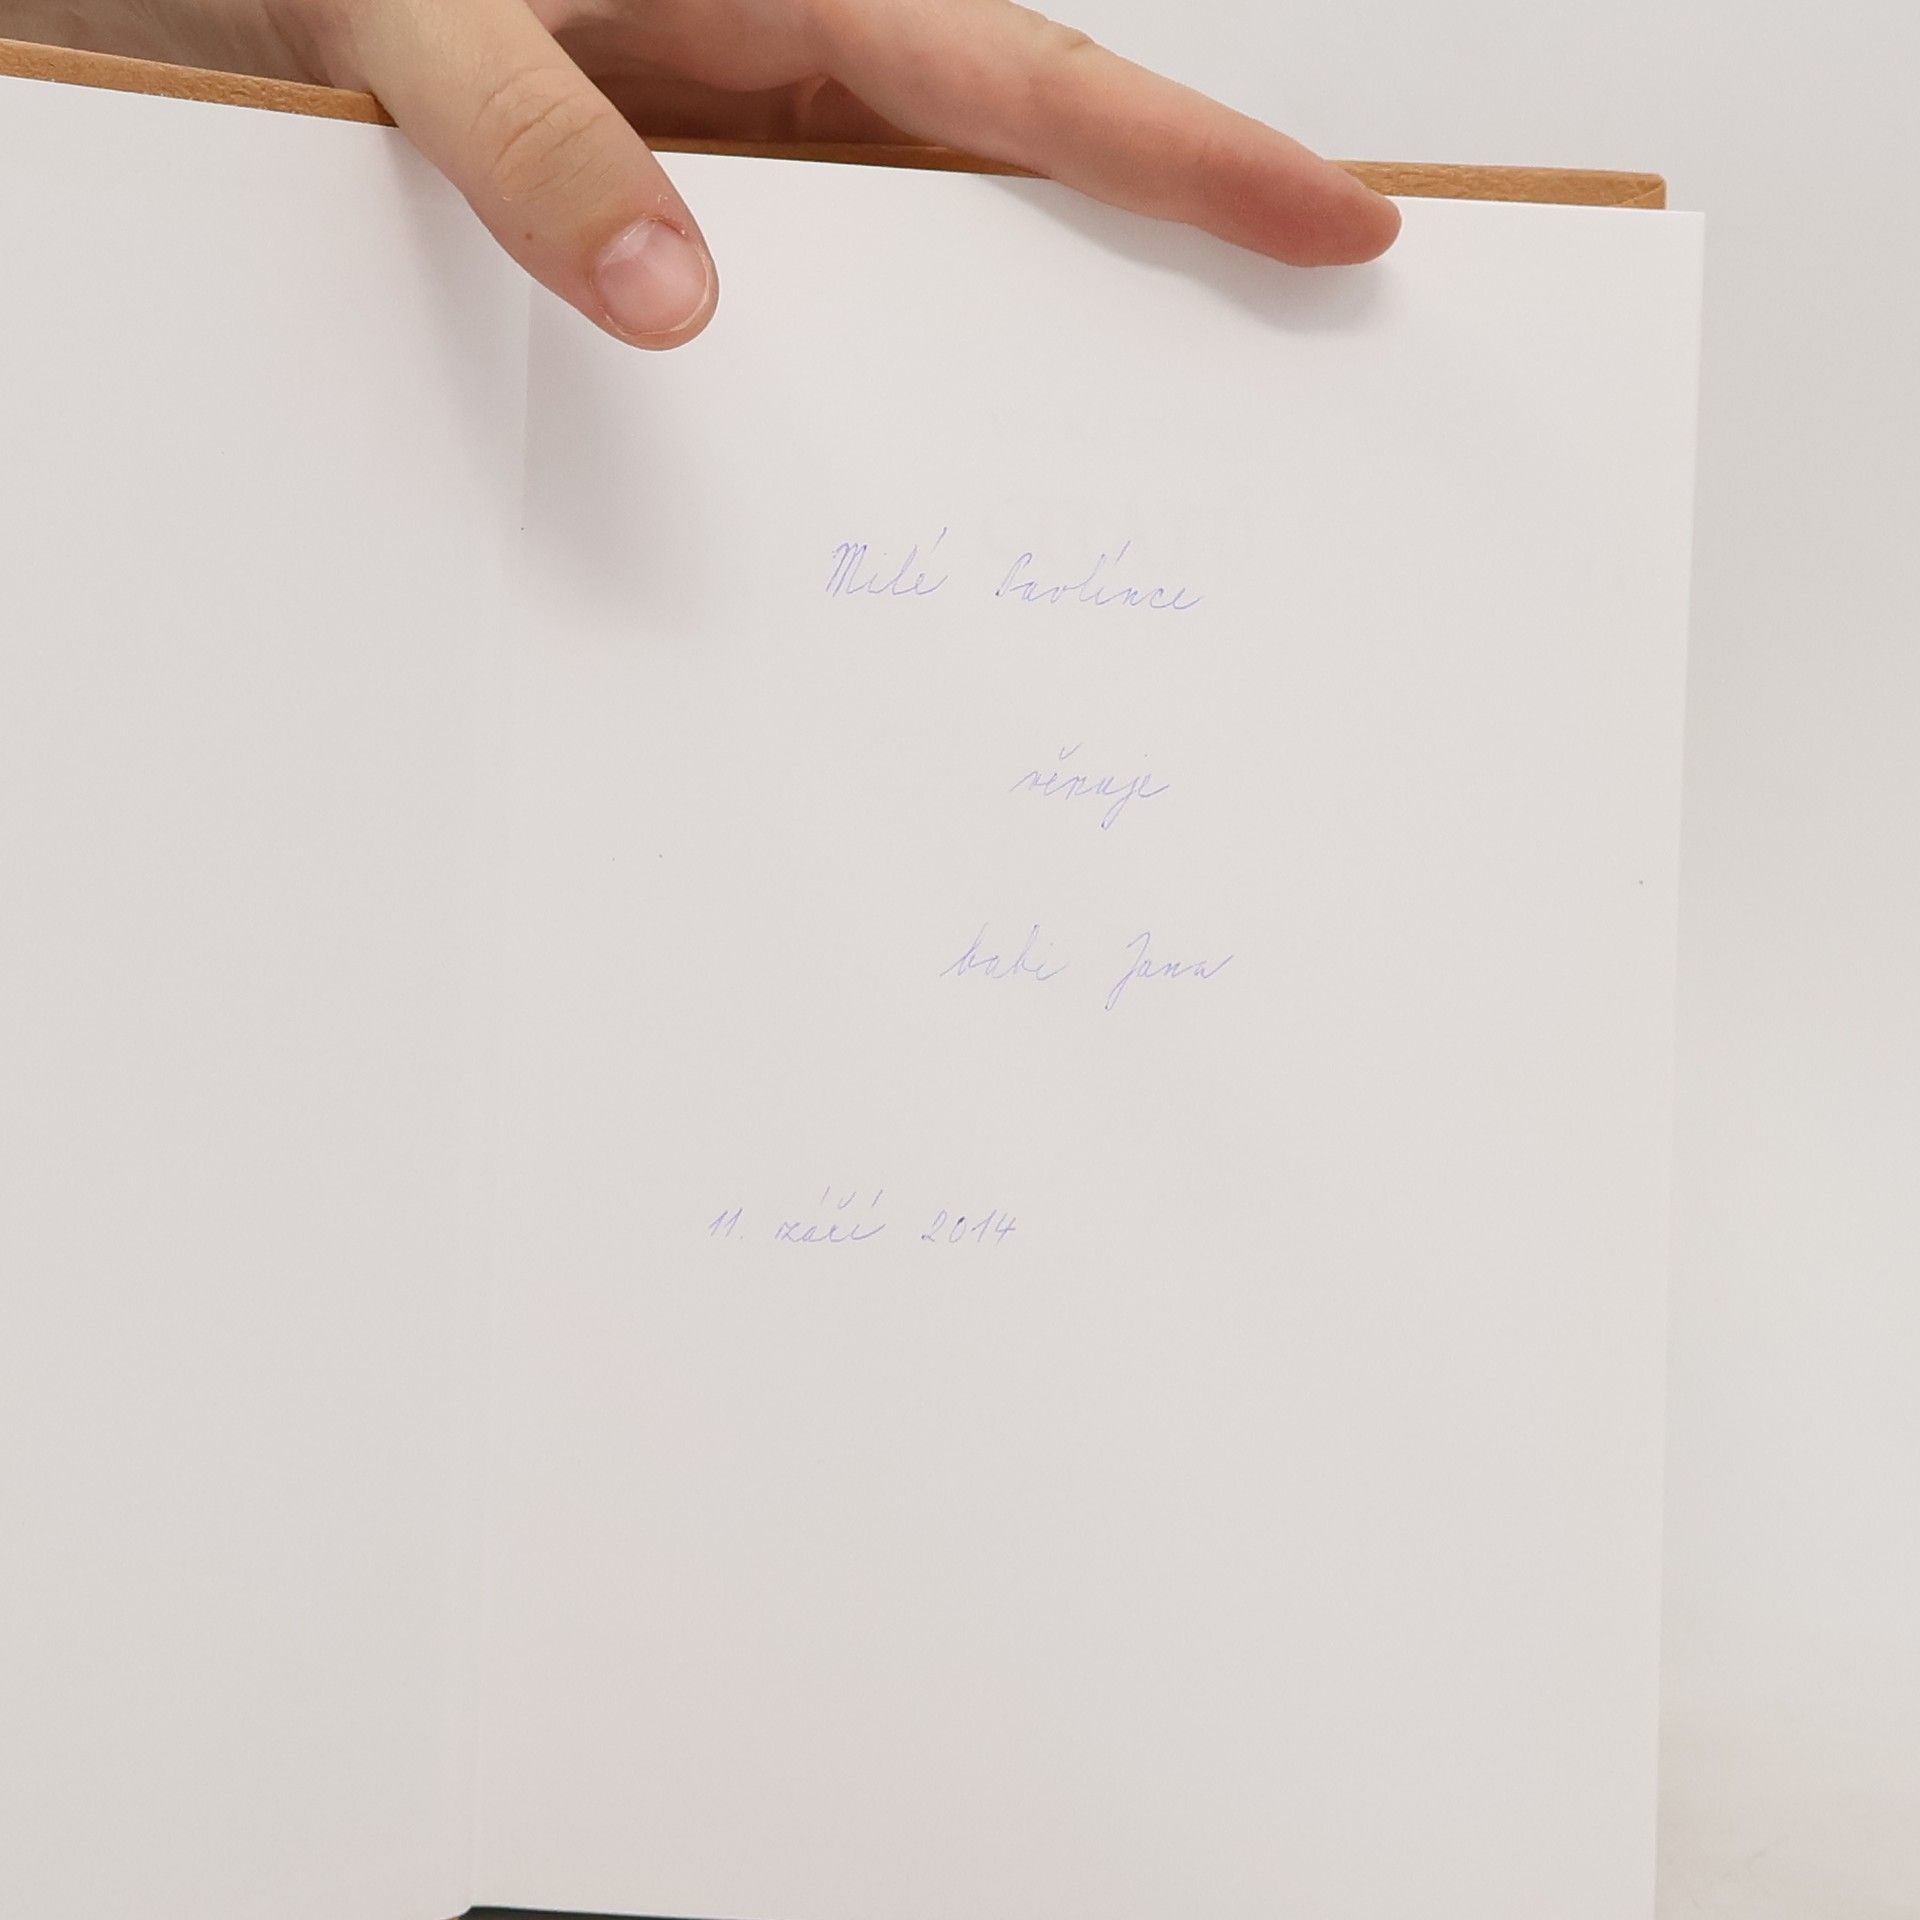 Milé Pavlínce
věnuje
babi Jana
11. září 2014